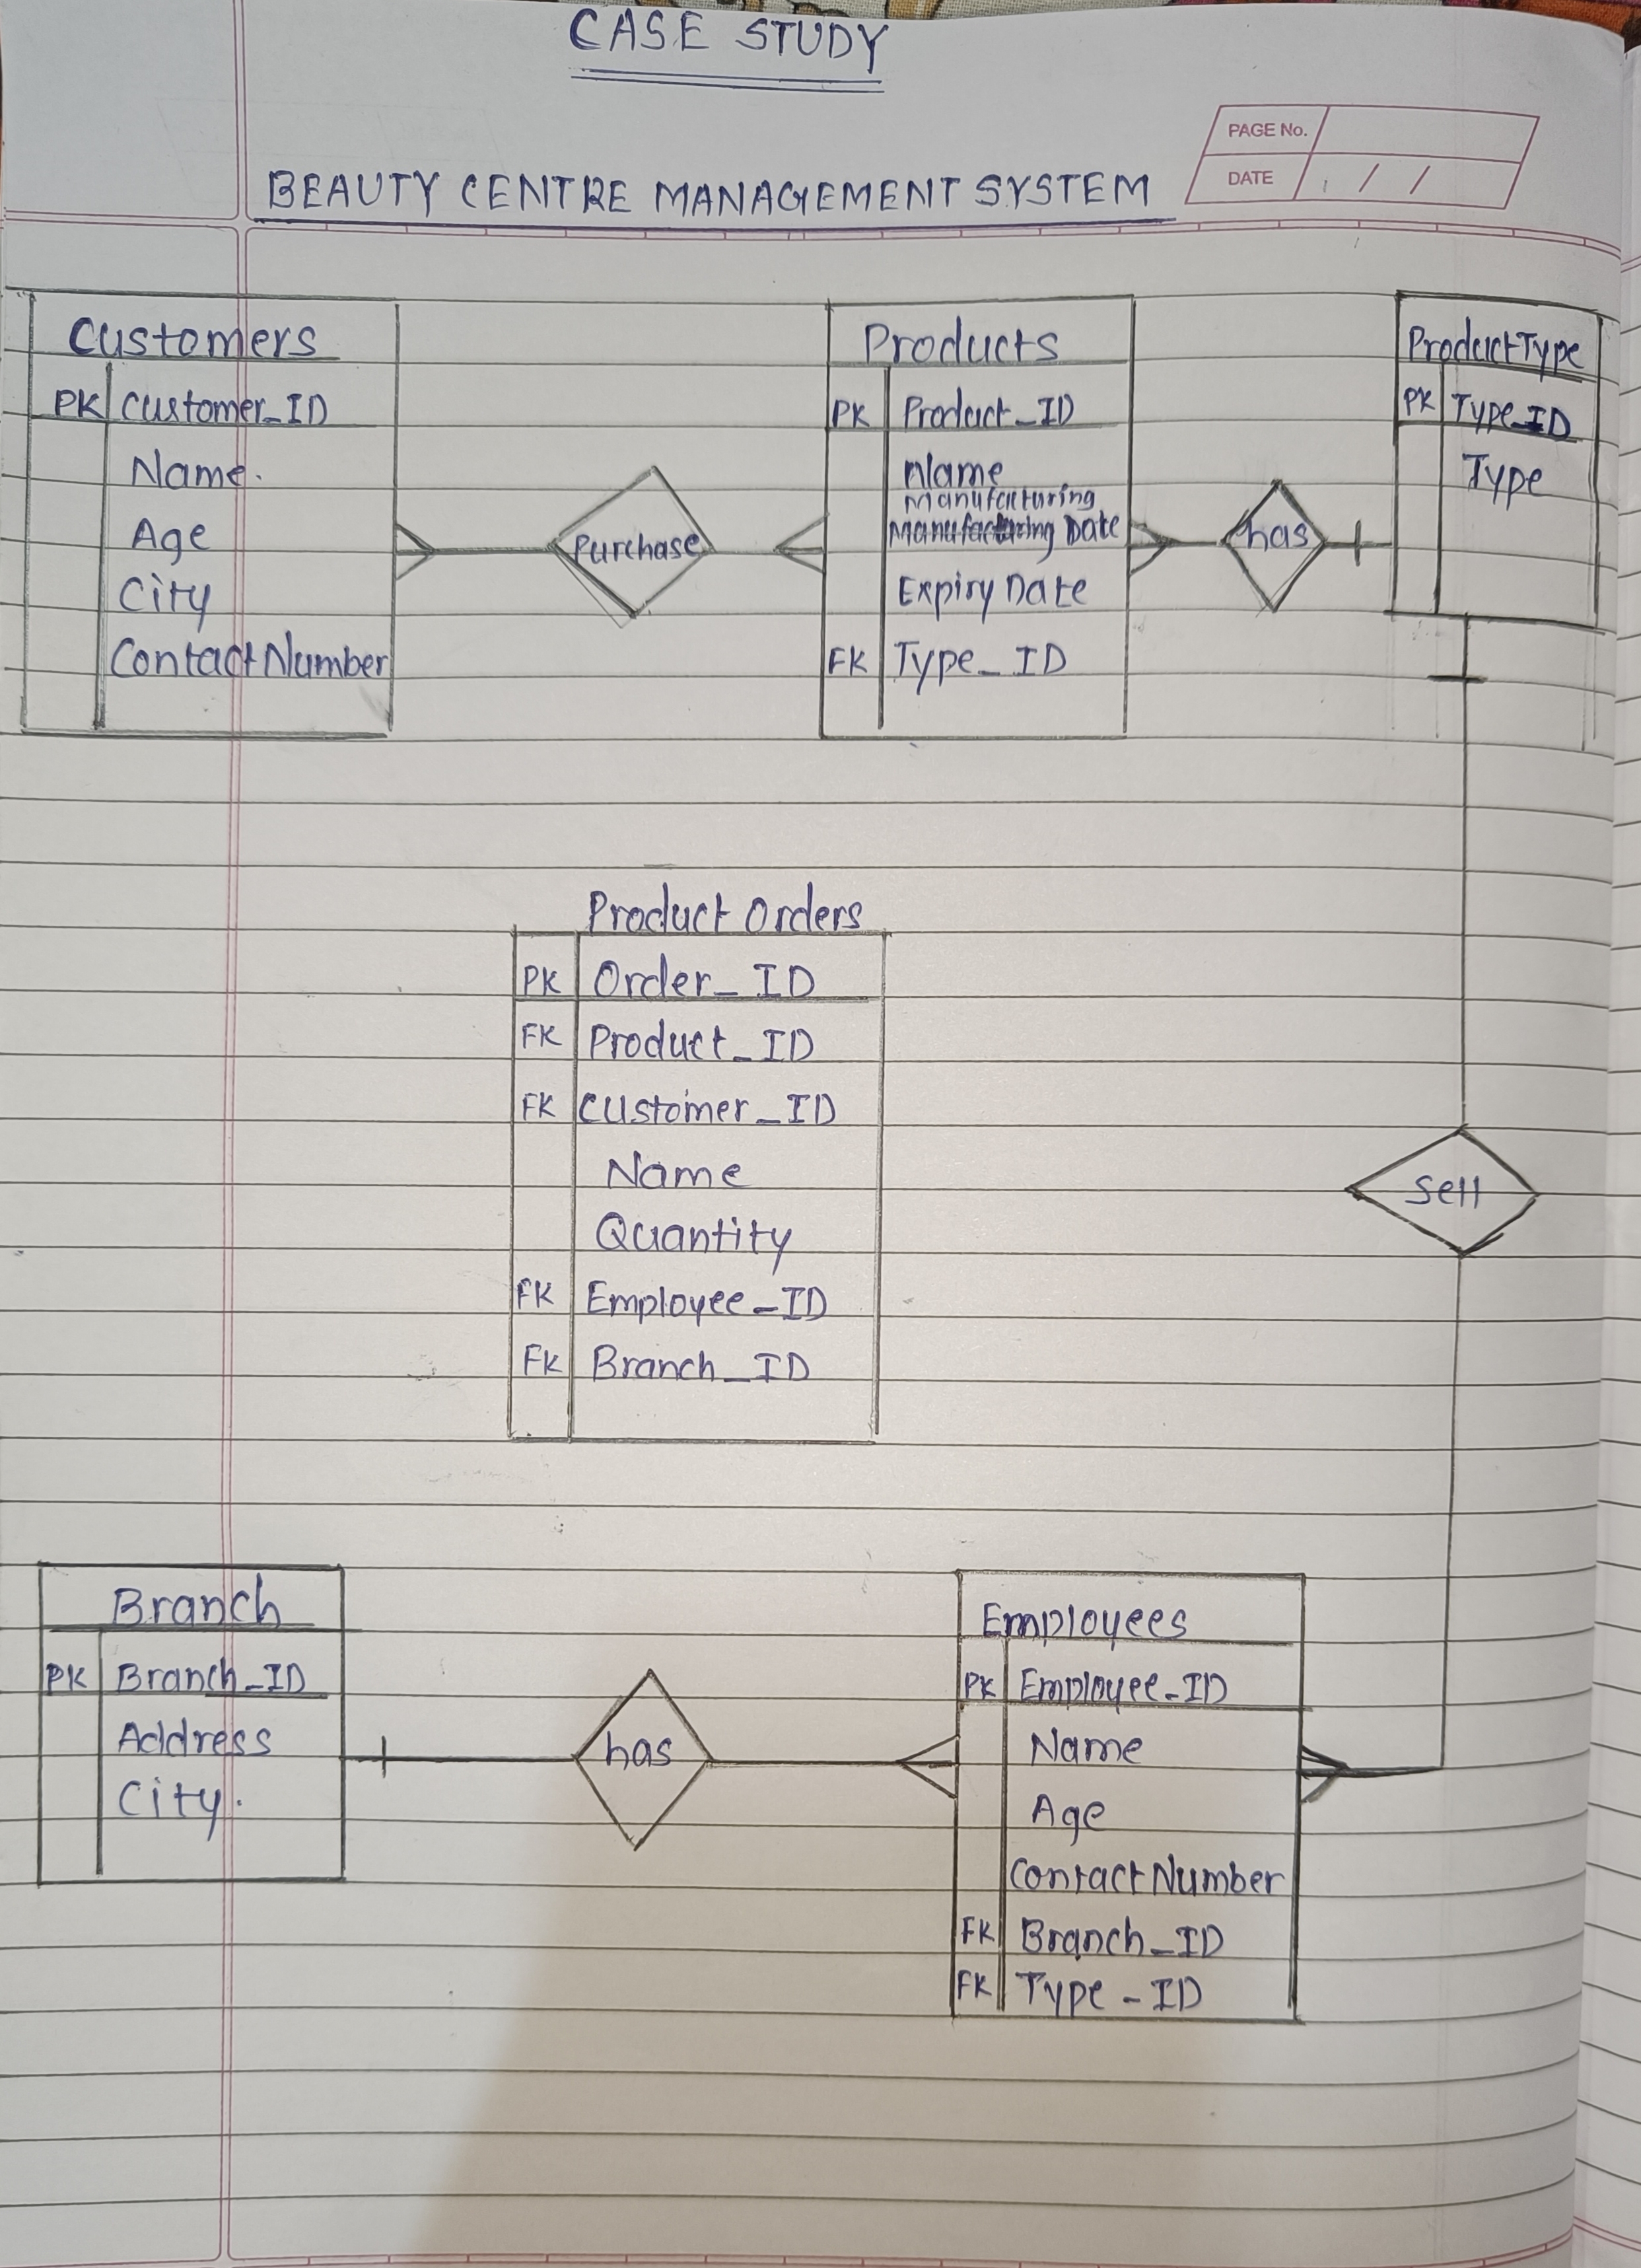 CASE STUDY
PAGE No.
DATE / /
BEAUTY CENTRE MANAGEMENT SYSTEM
Customers
PK Customer_ID
Name.
Age
City
Contact Number
Purchase
Products
PK Product_ID
Name
Manufacturing
Manufacturing Date
Expiry Date
FK Type_ID
has
Product Type
PK Type_ID
Type
Product Orders
PK Order_ID
FK Product_ID
FK Customer_ID
Name
Quantity
FK Employee_ID
FK Branch_ID
Sell
Branch
PK Branch_ID
Address
City.
has
Employees
PK Employee_ID
Name
Age
Contact Number
FK Branch_ID
FK Type_ID